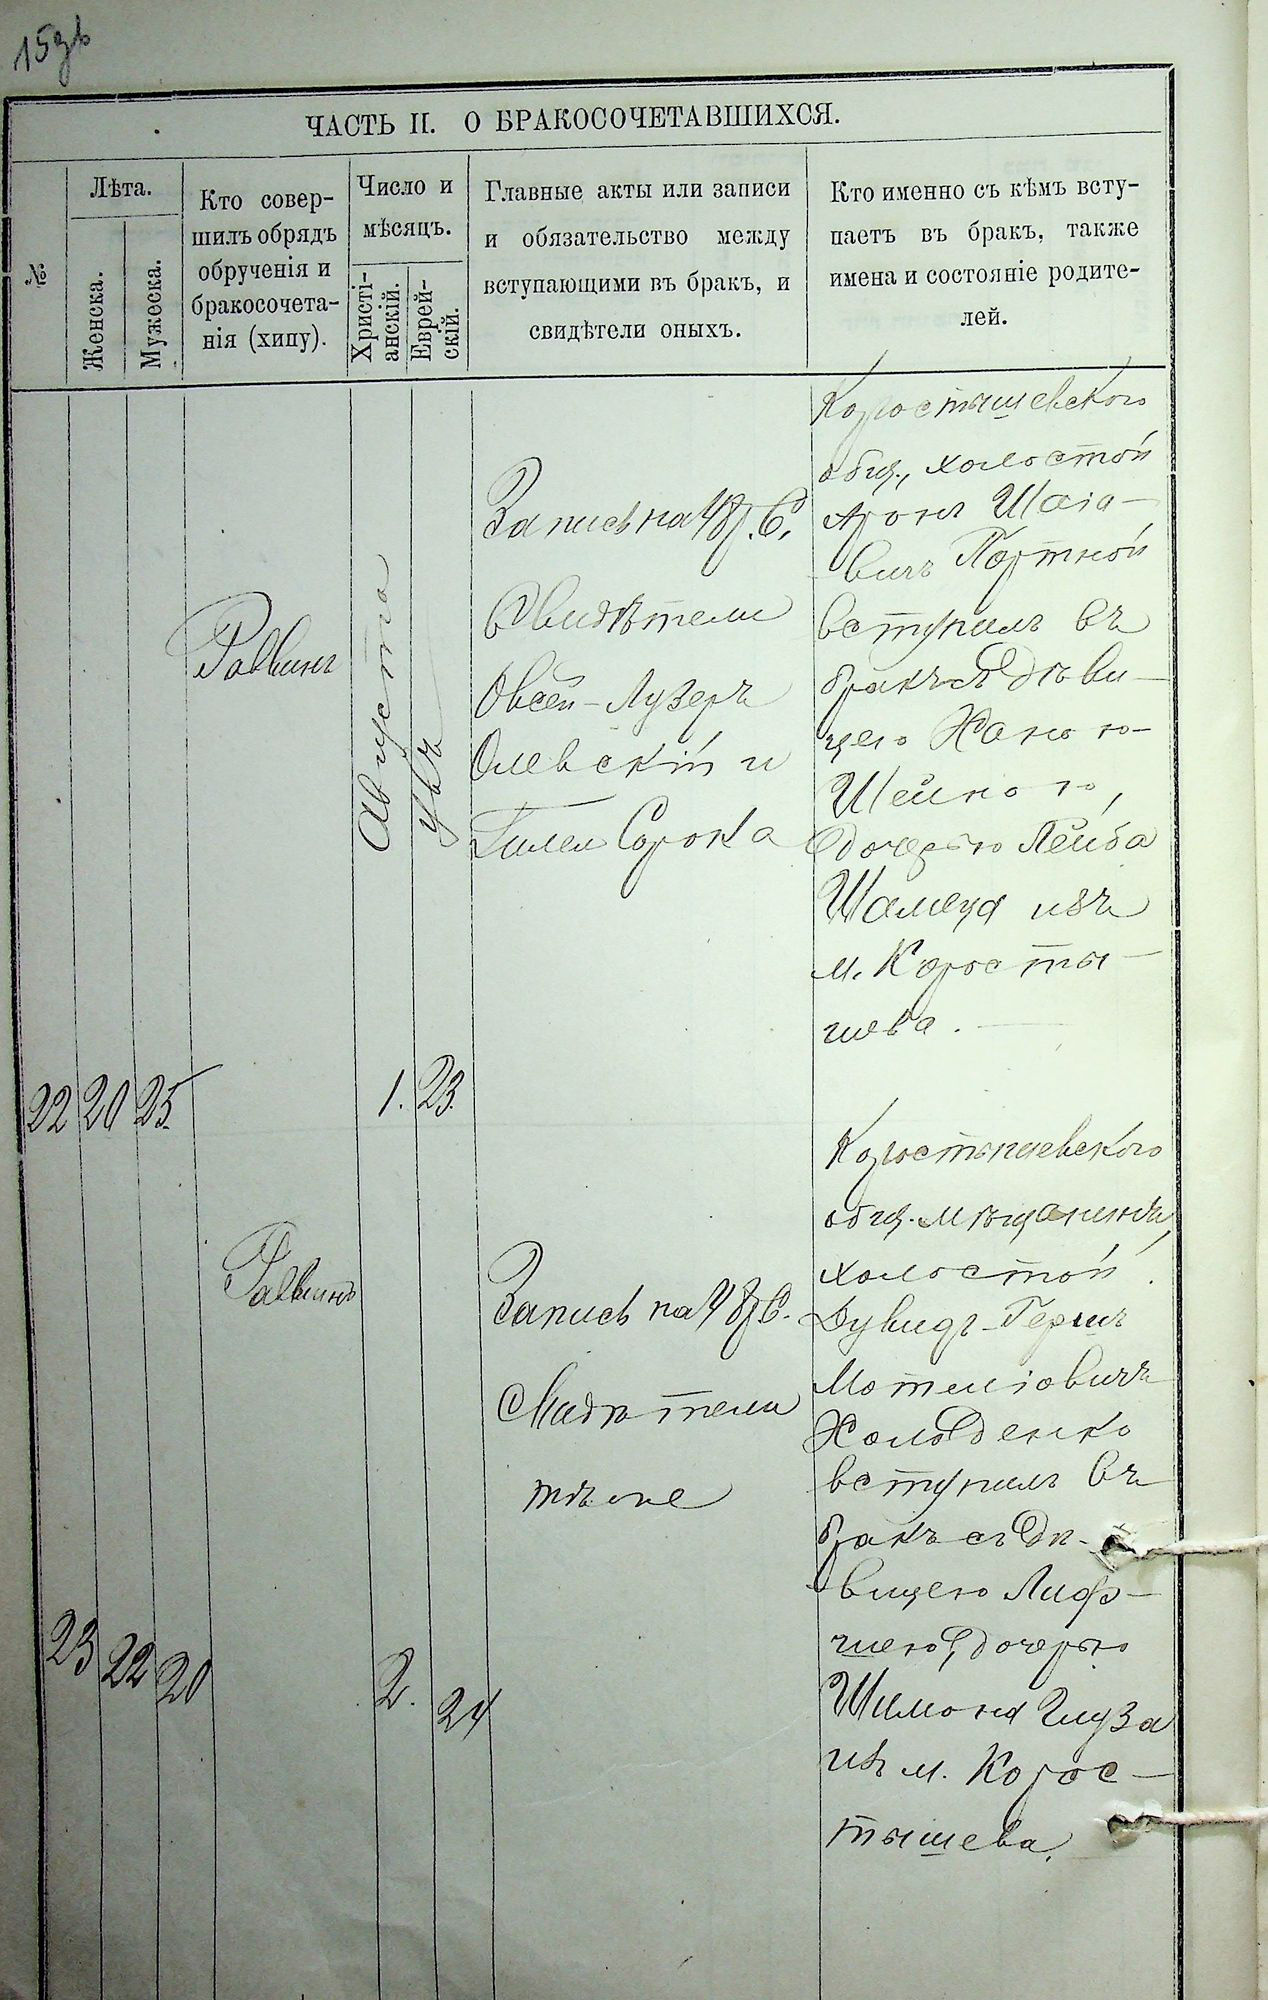 ЧАСТЬ II. О БРАКОСОЧЕТАВШИХСЯ.
№
Лѣта.
Женска.
Мужеска.
Кто совер-
шилъ обрядъ
обрученія и
бракосочета-
нія (хипу).
Число и
мѣсяцъ.
Христі-
анскій.
Еврей-
скій.
Главные акты или записи
и обязательство между
вступающими въ бракъ, и
свидѣтели оныхъ.
Кто именно съ кѣмъ всту-
паетъ въ бракъ, также
имена и состояніе родите-
лей.
22 20 25
Раввинъ
Августа
1. 23.
Запись на 48 р. С.
Свидѣтели
Овсей-Лузеръ
Олевскій и
Гилел Сорока
Коростышевскаго
общ., холостой
Аронъ Шаіо-
вичъ Портной
вступилъ въ
бракъ съ дѣви-
цею Ханою-
Шейною,
дочерью Лейба
Шамеса изъ
м. Коросты-
шева.
23 22 20
Раввинъ
2. 24
Запись на 48 р С.
Свидѣтели
тѣ же
Коростышевскаго
общ. мѣщанинъ,
холостой
Дувидъ-Герш
Мотеліовичъ
Холоденко
вступилъ въ
бракъ съ дѣ-
вицею Лиф-
шею, дочерью
Шимона Глуза
изъ м. Корос-
тышева.